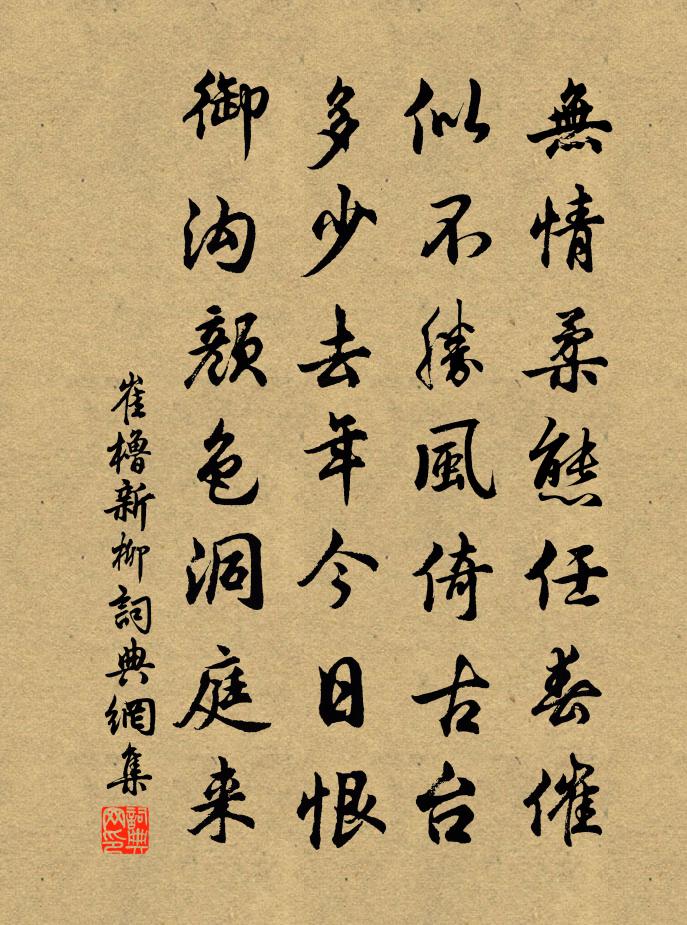 無情柔態任春催
似不勝風倚古台
多少去年今日恨
御沟顏色洞庭来
崔櫓新柳詞典網集
詞典网印